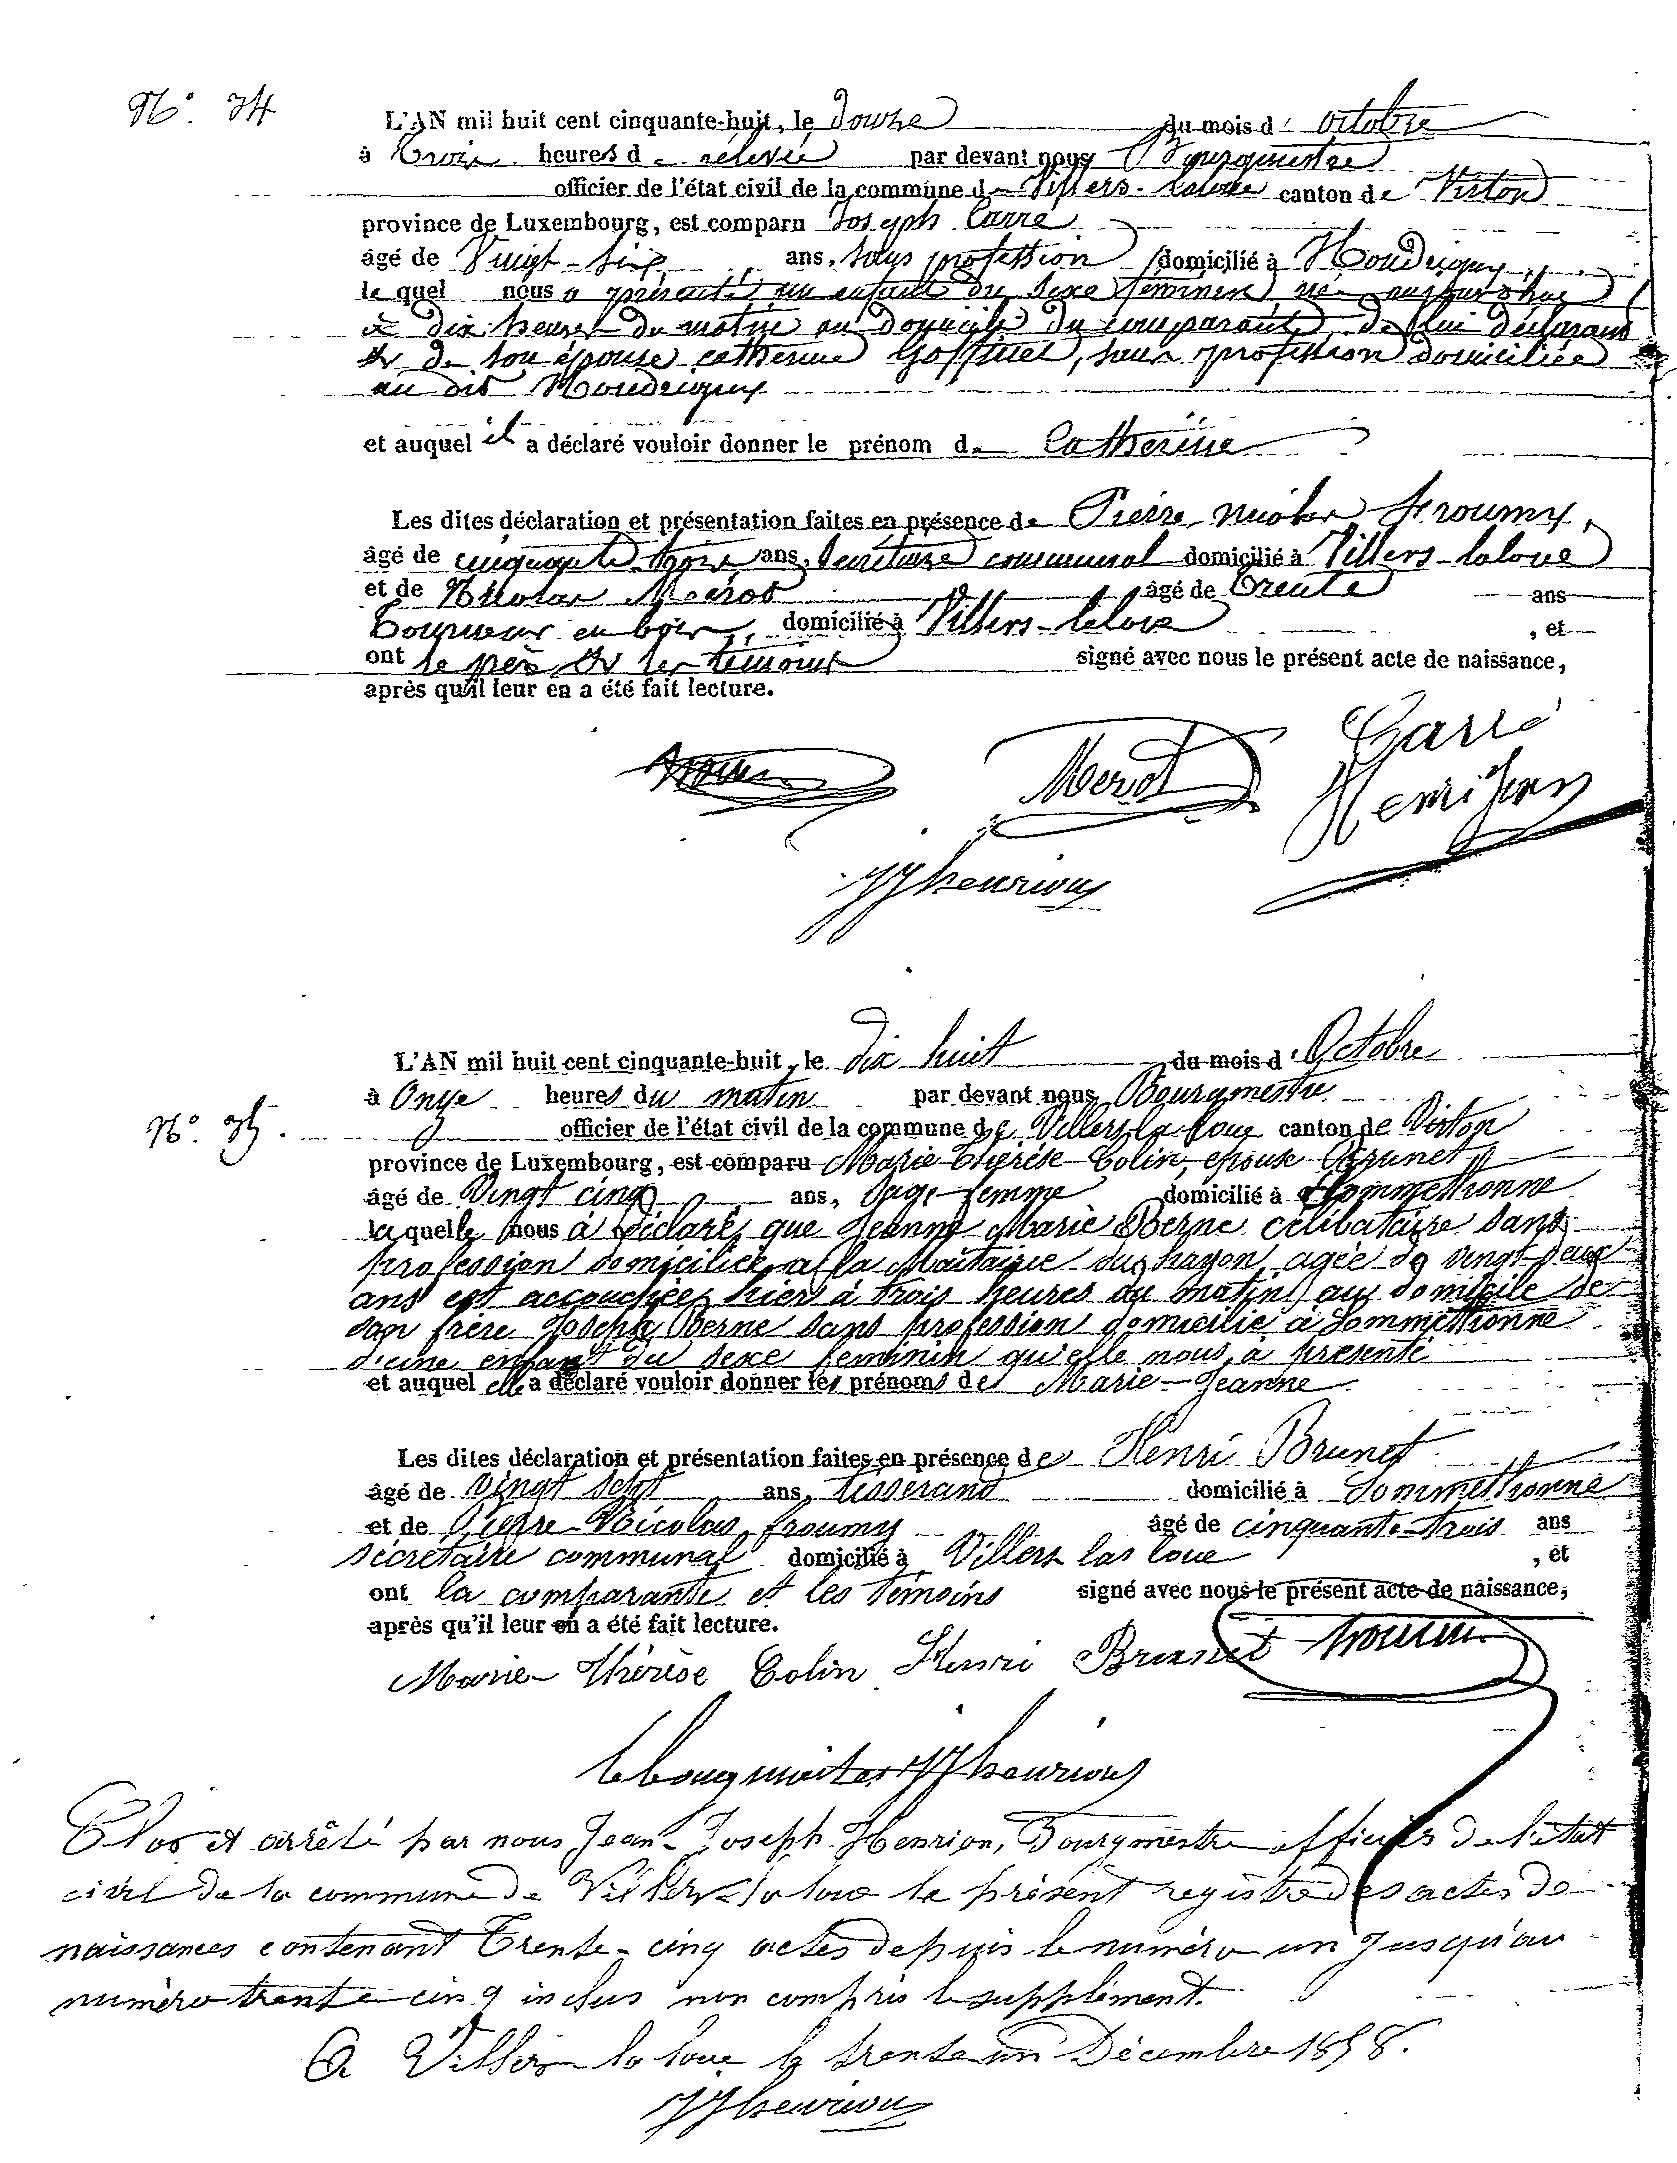 N°. 34
L'AN mil huit cent cinquante-huit, le douze du mois d' octobre
à trois heures de relevée par devant nous Bourgmestre
officier de l'état civil de la commune de Villers-laloue canton de Virton
province de Luxembourg, est comparu Joseph Carré
âgé de Vingt-six ans, sans profession domicilié à Houdrigny
le quel nous a présenté un enfant du sexe féminin né aujourd'hui
à dix heures du matin au domicile du comparant, de lui déclarant
et de son épouse catherine Goffinet, sans profession domiciliée
au dit Houdrigny
et auquel il a déclaré vouloir donner le prénom de Catherine
Les dites déclaration et présentation faites en présence de Pierre nicolas froumy,
âgé de cinquante trois ans, Secrétaire communal domicilié à Villers-laloue
et de Nicolas Mérot âgé de trente ans
tourneur en bois, domicilié à Villers-laloue , et
ont le père et les témoins signé avec nous le présent acte de naissance,
après qu'il leur en a été fait lecture.
Carré
froumy Merot Henri Jean
JJhenrion
L'AN mil huit cent cinquante-huit, le dix huit du mois d'Octobre
à Onze heures du matin par devant nous Bourgmestre
N°. 35.
officier de l'état civil de la commune de Villers la loue canton de Virton
province de Luxembourg, est comparu Marie Thérèse Colin, epouse Brunet
âgé de Vingt cinq ans, Sage-femme domicilié à Sommethonne
laquelle nous à déclaré que Jeanne Marie Berne célibataire sans
profession domiciliée a la Maitairie du hayon agée de vingt deux
ans est accouchée hier à trois heures du matin au domicile de
son frère Joseph Berne sans profession domicilié à Sommethonne
d'une enfant du sexe feminin qu'elle nous a présenté
et auquel elle a déclaré vouloir donner les prénoms de Marie-Jeanne
Les dites déclaration et présentation faites en présence de Henri Brunet
âgé de vingt sept ans, tisserand domicilié à Sommethonne
et de Pierre-Nicolas froumy âgé de cinquante-trois ans
sécretaire communal domicilié à Villers las loue , et
ont la comparante et les témoins signé avec nous le présent acte de naissance,
après qu'il leur en a été fait lecture.
Marie Thérèse Colin Henri Brunet froumy
le bourgmestre JJhenrion
Clos et arrêté par nous Jean-Joseph Henrion, Bourgmestre officier de l'état
civil de la commune de Villers-la loue le présent registre des actes de
naissances contenant Trente-cinq actes depuis le numéro un jusqu'au
numéro trente cinq inclus non compris le supplément.
A Villers la loue le trente un Décembre 1858.
JJhenrion